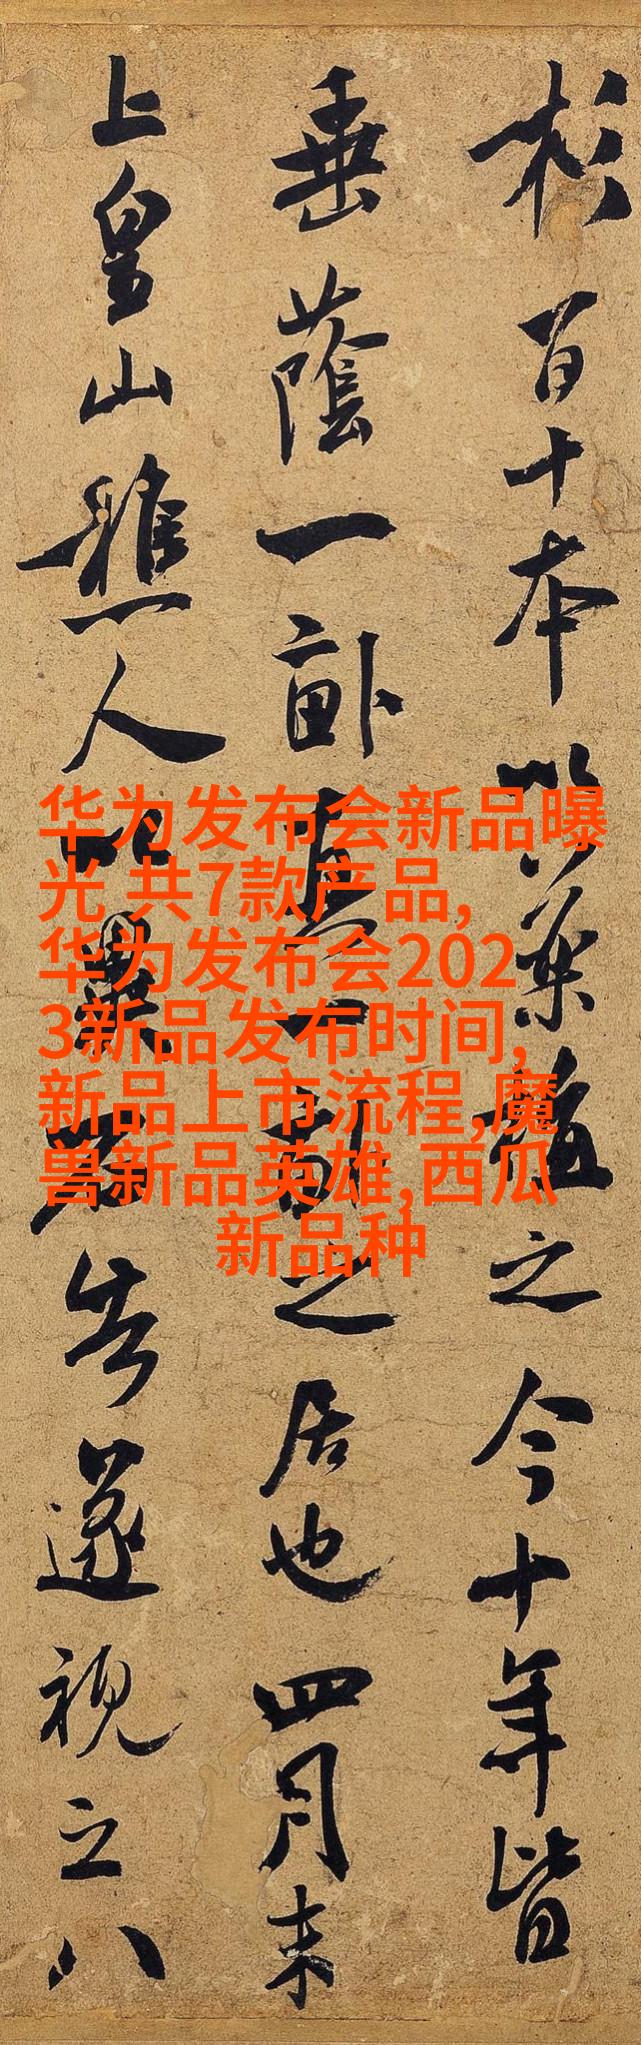 杉百十本以植之今十年皆
垂蔭一畝真一畝之居也四月末
上皇山樵人以異石告遂視之八
华为发布会新品曝
光 共7款产品,
华为发布会202
3新品发布时间,
新品上市流程,魔
兽新品英雄,西瓜
新品种